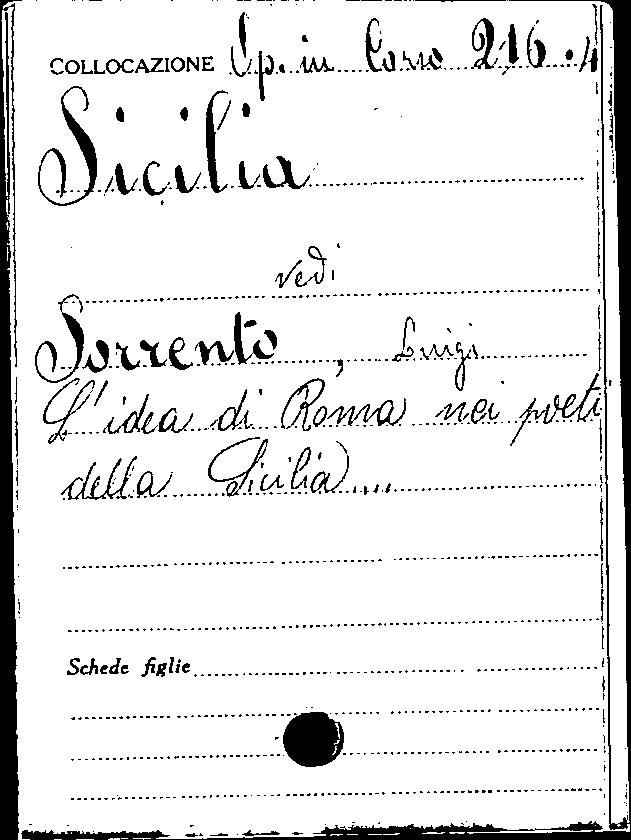 COLLOCAZIONE Op. in Corso 216.4
Sicilia
vedi
Sorrento, Luigi
L'idea di Roma nei poeti
della Sicilia....
Schede figlie